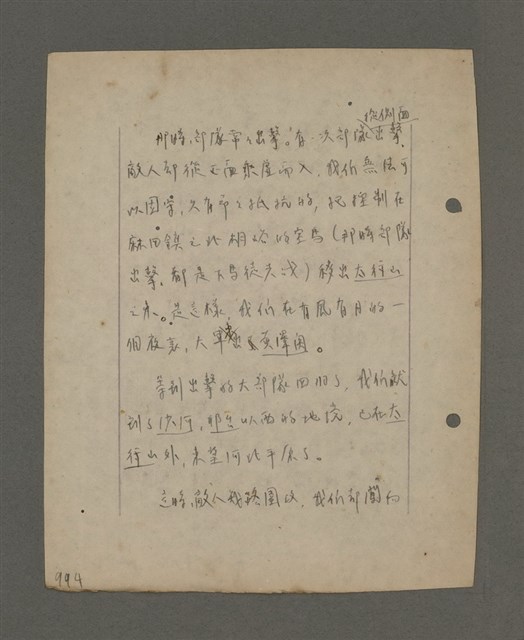 從側面
那時,部隊常々出擊。有一次部隊出擊,
敵人卻從正面乘虛而入,我們無法可
以固守,只有節々抵抗的,把控制在
麻田鎮之北桐峪的空馬(那時部隊
出擊,都是下馬徒步戰)移出太行山
之東。是這樣,我們在有風有月的一
個夜裏,大軍
等到出擊的大部隊回歸了,我們就
到了沙河,邢台以西的地境,已在太
行山外,東望河北平原了。
這時,敵人 圍攻,我們卻開向
994